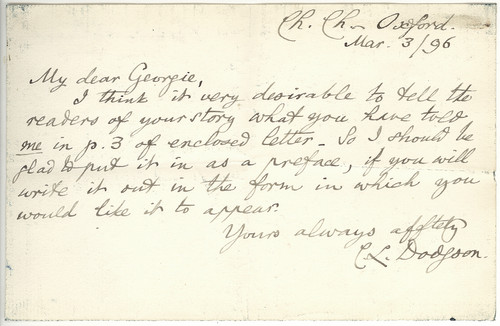 Ch. Ch. Oxford.
Mar. 3/96
My dear Georgie,
I think it very desirable to tell the
readers of your story what you have told
me in p. 3 of enclosed letter - So I should be
glad to put it in as a preface, if you will
write it out in the form in which you
would like it to appear.
Yours always afftely
C. L. Dodgson.